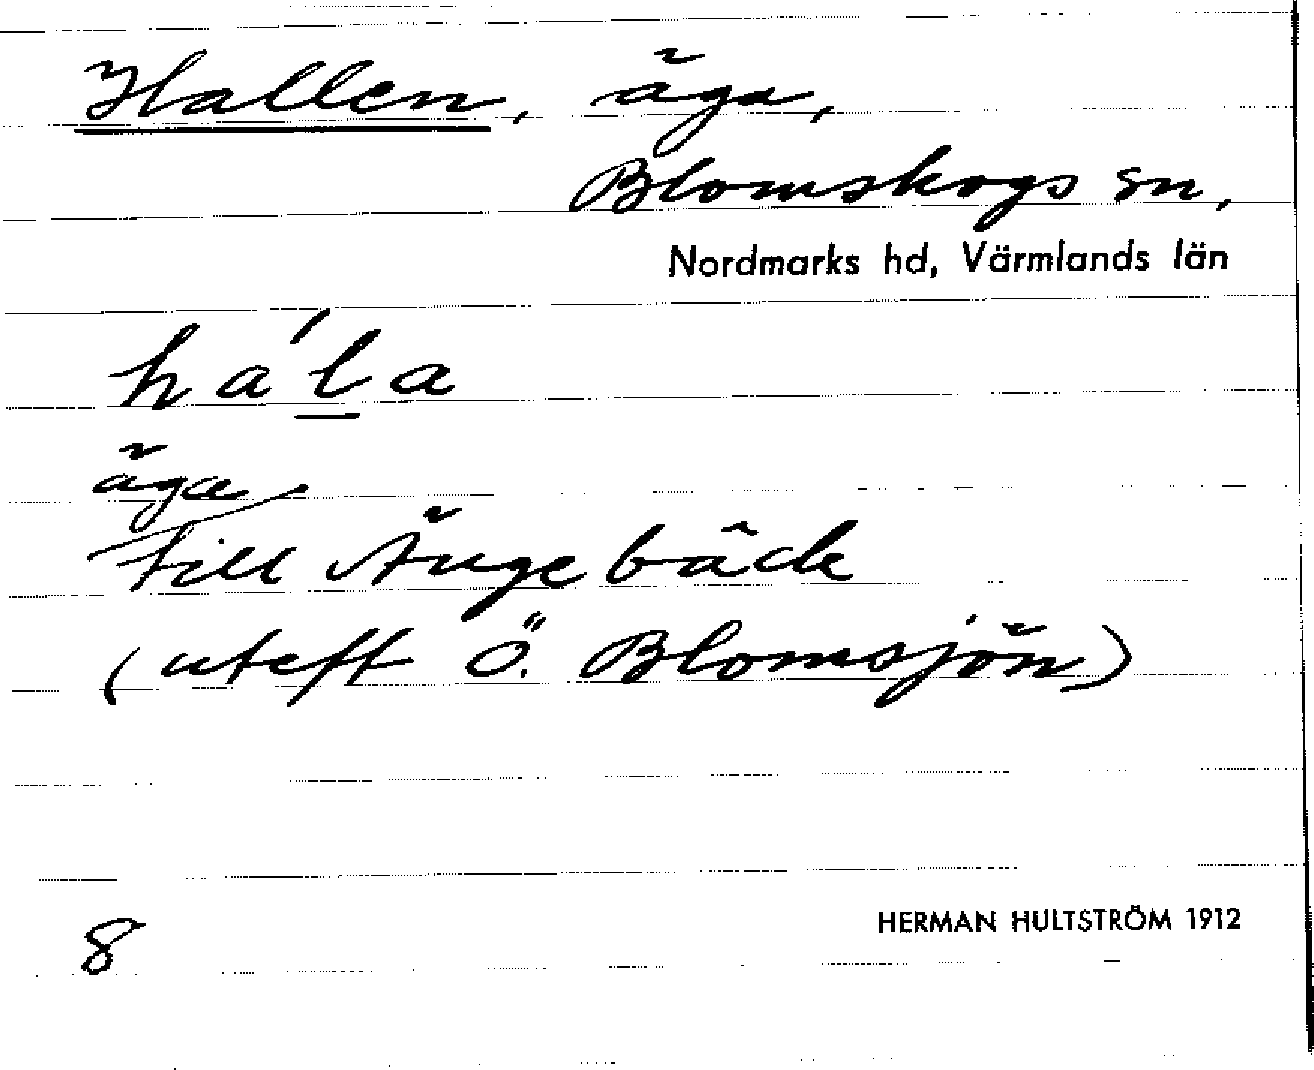 Hallen, äga,
Blomskogs sn,
Nordmarks hd, Värmlands län
ha´la
äga
till Ängebäck
(uteft Ö. Blomsjön)
8
HERMAN HULTSTRÖM 1912